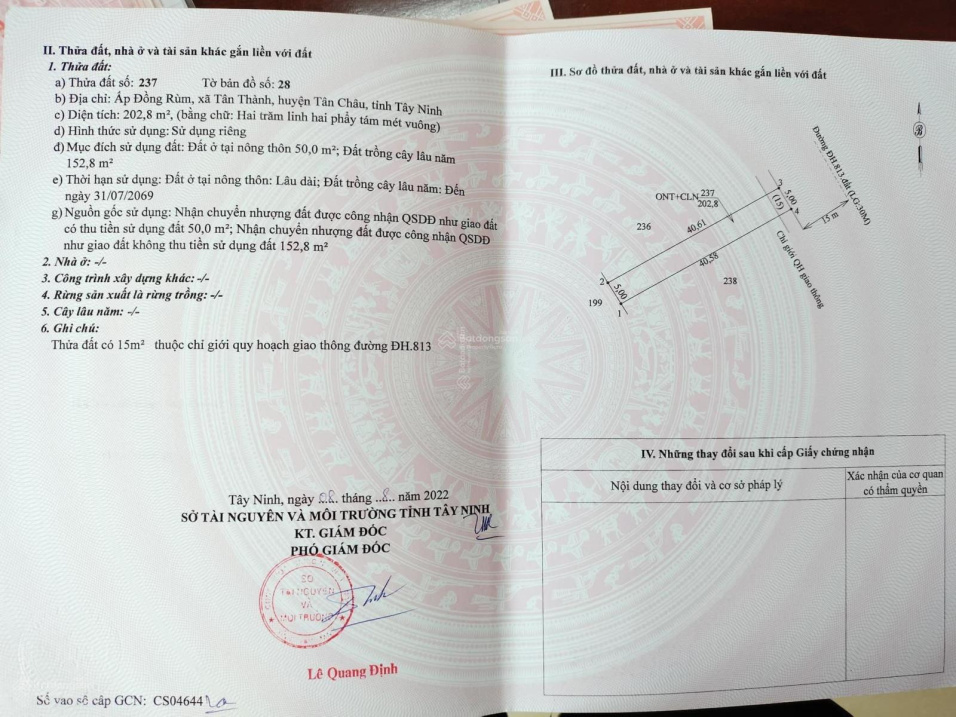 II. Thửa đất, nhà ở và tài sản khác gắn liền với đất
1. Thửa đất:
a) Thửa đất số: 237 Tờ bản đồ số: 28
b) Địa chỉ: Ấp Đồng Rùm, xã Tân Thành, huyện Tân Châu, tỉnh Tây Ninh
c) Diện tích: 202,8 m², (bằng chữ: Hai trăm linh hai phẩy tám mét vuông)
d) Hình thức sử dụng: Sử dụng riêng
đ) Mục đích sử dụng đất: Đất ở tại nông thôn 50,0 m²; Đất trồng cây lâu năm
152,8 m²
e) Thời hạn sử dụng: Đất ở tại nông thôn: Lâu dài; Đất trồng cây lâu năm: Đến
ngày 31/07/2069
g) Nguồn gốc sử dụng: Nhận chuyển nhượng đất được công nhận QSDĐ như giao đất
có thu tiền sử dụng đất 50,0 m²; Nhận chuyển nhượng đất được công nhận QSDĐ
như giao đất không thu tiền sử dụng đất 152,8 m²
2. Nhà ở: -/-
3. Công trình xây dựng khác: -/-
4. Rừng sản xuất là rừng trồng: -/-
5. Cây lâu năm: -/-
6. Ghi chú:
Thửa đất có 15m² thuộc chỉ giới quy hoạch giao thông đường ĐH.813
Tây Ninh, ngày tháng 8 năm 2022
SỞ TÀI NGUYÊN VÀ MÔI TRƯỜNG TỈNH TÂY NINH
KT. GIÁM ĐỐC
PHÓ GIÁM ĐỐC
SỞ
TÀI NGUYÊN
VÀ
MÔI TRƯỜNG
Lê Quang Định
Số vào sổ cấp GCN: CS04644
III. Sơ đồ thửa đất, nhà ở và tài sản khác gắn liền với đất
B
Đường ĐH.813 đất (LG:30M)
ONT+CLN 237
202,8
3
5,00
(15)
4
15 m
236
40,61
Chỉ giới QH giao thông
40,58
238
2
5,00
199
1
Batdongsan
IV. Những thay đổi sau khi cấp Giấy chứng nhận
Nội dung thay đổi và cơ sở pháp lý
Xác nhận của cơ quan
có thẩm quyền